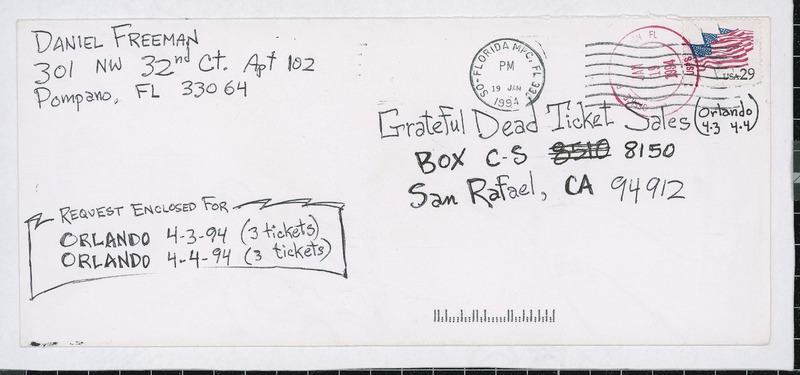 DANIEL FREEMAN
301 NW 32nd Ct. Apt 102
Pompano, FL 33064
SO-FLORIDA MPC, FL 331
PM
19 JAN
1994
FL
JAN
1994
USA 29
Grateful Dead Ticket Sales (Orlando 4.3 4.4)
BOX C-S 8510 8150
San Rafael, CA 94912
REQUEST ENCLOSED FOR
ORLANDO 4-3-94 (3 tickets)
ORLANDO 4-4-94 (3 tickets)